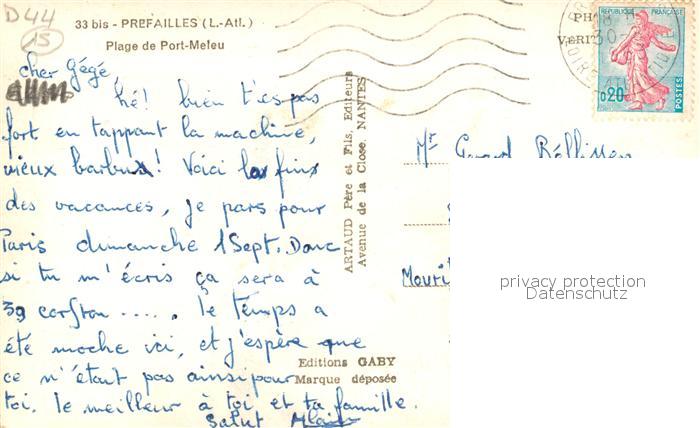 D44
15
33 bis - PREFAILLES (L.-Atl.)
Plage de Port-Mefeu
cher Gégé,
hé! bien t'es pas
fort en tappant la machine,
vieux barbux! Voici la fin
des vacances, je pars pour
Paris dimanche 1 Sept. Donc
si tu m'écris ça sera à
39 ..... le temps a
été moche ici, et j'espère que
ce n'était pas ainsi pour
toi. le meilleur à toi et ta famille.
Salut Alain
Editions GABY
Marque déposée
ARTAUD Père et Fils, Editeurs
Avenue de la Close, NANTES
REPUBLIQUE FRANÇAISE
0,20
POSTES
Mr Gérard
privacy protection
Datenschutz